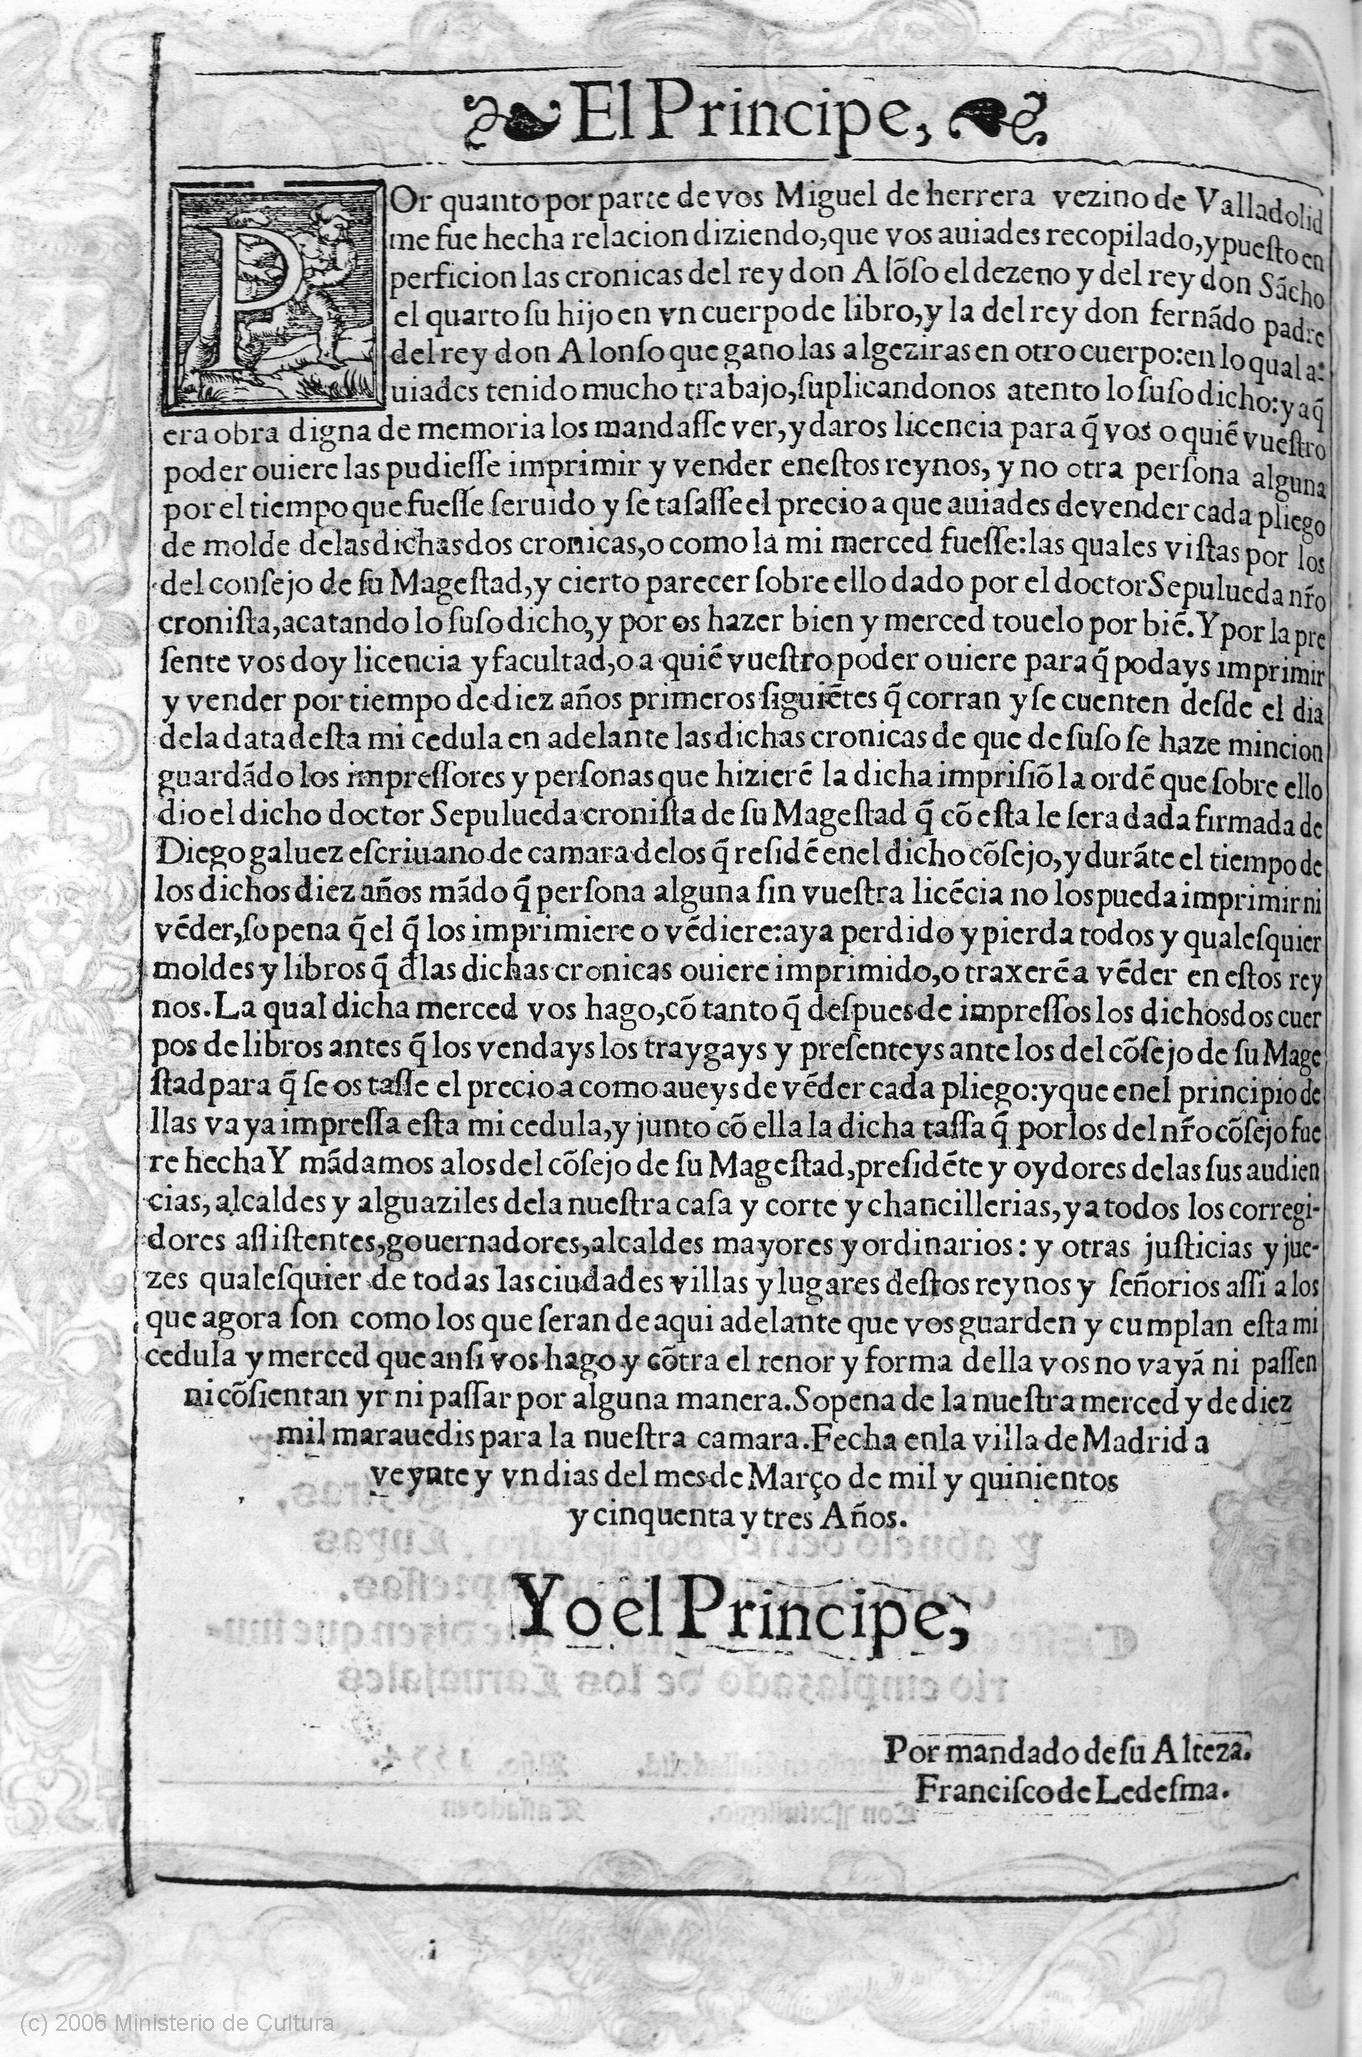 El Principe,
POr quanto por parte de vos Miguel de herrera vezino de Valladolid
me fue hecha relacion diziendo, que vos auiades recopilado, y puesto en
perficion las cronicas del rey don Alõso el dezeno y del rey don Sãcho
el quarto su hijo en vn cuerpo de libro, y la del rey don fernãdo padre
del rey don Alonso que gano las algeziras en otro cuerpo: en lo qual a-
uiades tenido mucho trabajo, suplicandonos atento lo suso dicho: y a q̃
era obra digna de memoria los mandasse ver, y daros licencia para q̃ vos o quiẽ vuestro
poder ouiere las pudiesse imprimir y vender enestos reynos, y no otra persona alguna
por el tiempo que fuesse seruido y se tasasse el precio a que auiades de vender cada pliego
de molde delas dichas dos cronicas, o como la mi merced fuesse: las quales vistas por los
del consejo de su Magestad, y cierto parecer sobre ello dado por el doctor Sepulueda nr̃o
cronista, acatando lo suso dicho, y por os hazer bien y merced touelo por biẽ. Y por la pre
sente vos doy licencia y facultad, o a quiẽ vuestro poder ouiere para q̃ podays imprimir
y vender por tiempo de diez años primeros siguiẽtes q̃ corran y se cuenten desde el dia
dela data desta mi cedula en adelante las dichas cronicas de que de suso se haze mincion
guardãdo los impressores y personas que hizierẽ la dicha imprisiõ la ordẽ que sobre ello
dio el dicho doctor Sepulueda cronista de su Magestad q̃ cõ esta le sera dada firmada de
Diego galuez escriuano de camara delos q̃ residẽ enel dicho cõsejo, y durãte el tiempo de
los dichos diez años mãdo q̃ persona alguna sin vuestra licẽcia no los pueda imprimir ni
vẽder, so pena q̃ el q̃ los imprimiere o vẽdiere: aya perdido y pierda todos y qualesquier
moldes y libros q̃ d̃las dichas cronicas ouiere imprimido, o traxerẽ a vẽder en estos rey
nos. La qual dicha merced vos hago, cõ tanto q̃ despues de impressos los dichos dos cuer
pos de libros antes q̃ los vendays los traygays y presenteys ante los del cõsejo de su Mage
stad para q̃ se os tasse el precio a como aueys de vẽder cada pliego: y que enel principio de
llas vaya impressa esta mi cedula, y junto cõ ella la dicha tassa q̃ por los del nr̃o cõsejo fue
re hecha Y mãdamos alos del cõsejo de su Magestad, presidẽte y oydores delas sus audien
cias, alcaldes y alguaziles dela nuestra casa y corte y chancillerias, y a todos los corregi-
dores assistentes, gouernadores, alcaldes mayores y ordinarios: y otras justicias y jue-
zes qualesquier de todas las ciudades villas y lugares destos reynos y señorios assi a los
que agora son como los que seran de aqui adelante que vos guarden y cumplan esta mi
cedula y merced que ansi vos hago y cõtra el tenor y forma della vos no vayã ni passen
ni cõsientan yr ni passar por alguna manera. So pena de la nuestra merced y de diez
mil marauedis para la nuestra camara. Fecha enla villa de Madrid a
veynte y vn dias del mes de Março de mil y quinientos
y cinquenta y tres Años.
Yo el Principe,
Por mandado de su Alteza.
Francisco de Ledesma.
(c) 2006 Ministerio de Cultura